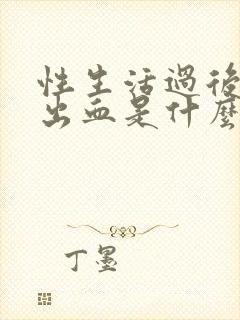 性生活過後
出血是什麼
丁墨